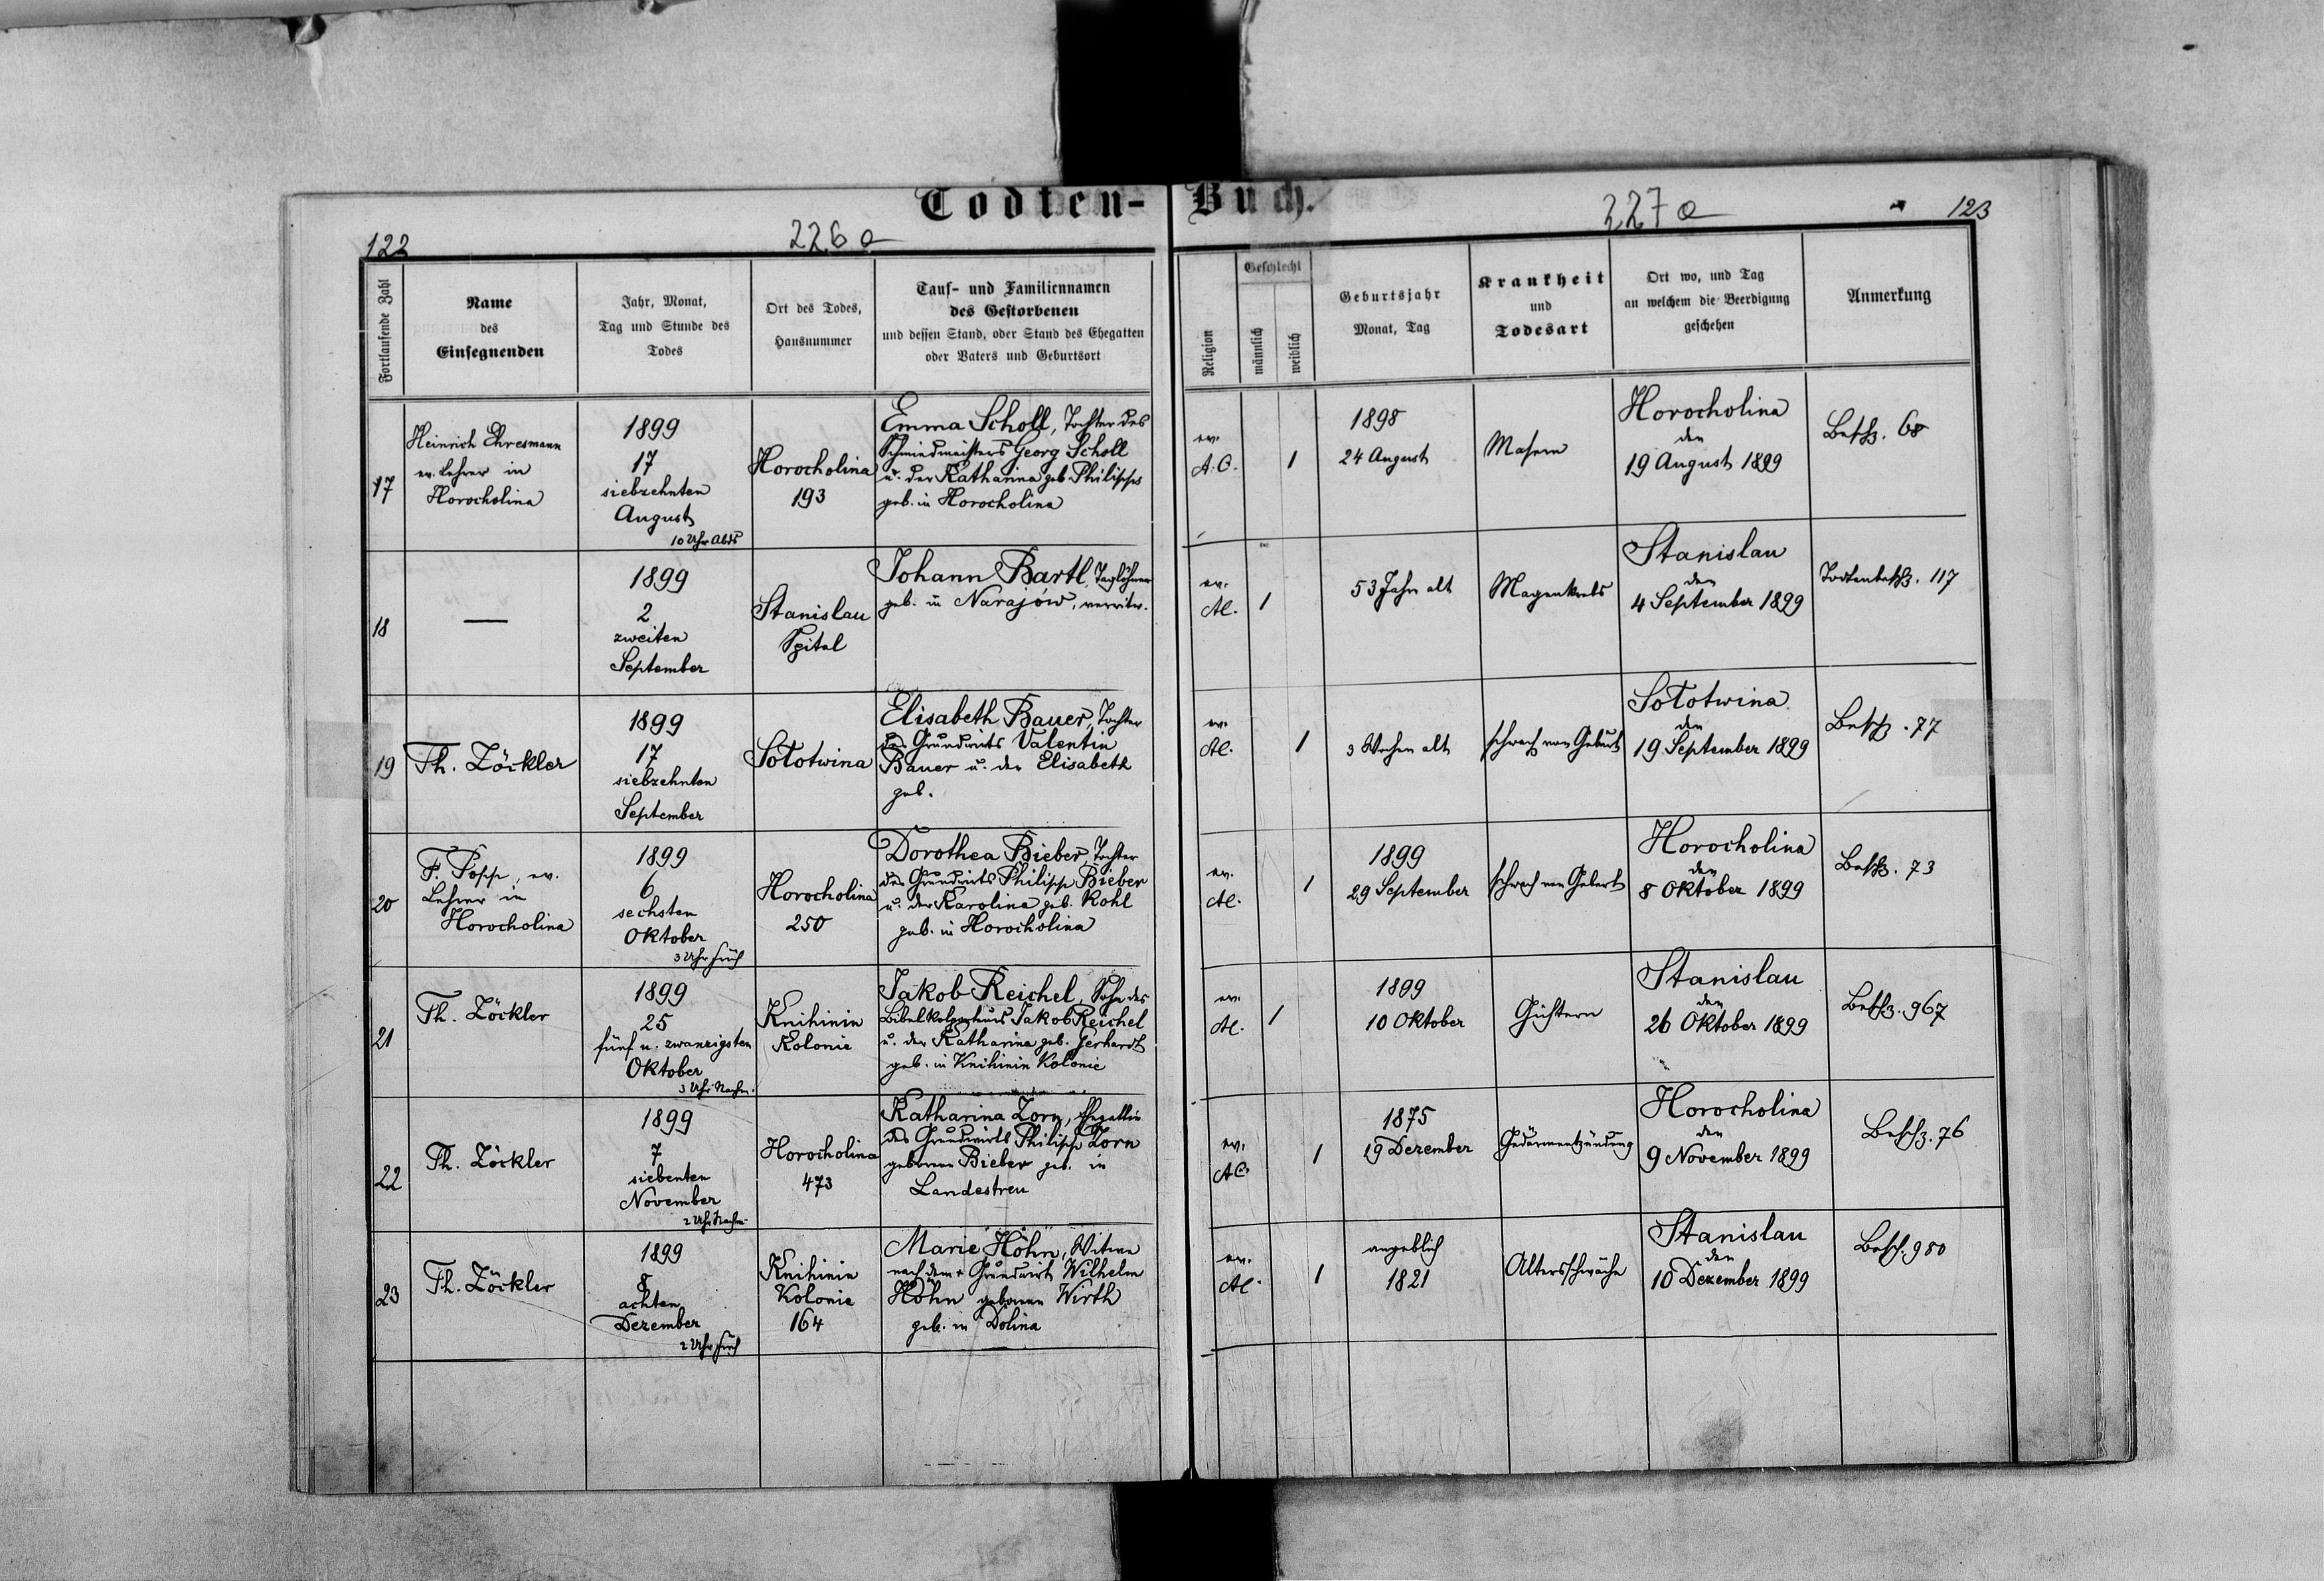 Todten- Buch.
122
226 a
227 a
123
Fortlaufende Zahl
Name
des
Einsegnenden
Jahr, Monat,
Tag und Stunde des
Todes
Ort des Todes,
Hausnummer
Tauf- und Familiennamen
des Gestorbenen
und dessen Stand, oder Stand des Ehegatten
oder Vaters und Geburtsort
Religion
Geschlecht
männlich
weiblich
Geburtsjahr
Monat, Tag
Krankheit
und
Todesart
Ort wo, und Tag
an welchem die Beerdigung
geschehen
Anmerkung
17
Heinrich Ehresmann
ev. Lehrer in
Horocholina
1899
17
siebzehnten
August
10 Uhr Abds
Horocholina
193
Emma Scholl, Tochter des
Schmiedmeisters Georg Scholl
u. der Katharina geb. Philipps
geb. in Horocholina
ev.
A.C.
1
1898
24 August
Masern
Horocholina
den
19 August 1899
Besch. 68
18
—
1899
2
zweiten
September
Stanislau
Spital
Johann Bartl, Taglöhner
geb. in Narajów, verwitw.
ev.
AC.
1
53 Jahre alt
Magenkrebs
Stanislau
den
4 September 1899
Todtenbesch. 117
19
Th. Zöckler
1899
17
siebzehnten
September
Sołotwina
Elisabeth Bauer, Tochter
des Grundwirts Valentin
Bauer u. der Elisabeth
geb.
ev.
AC.
1
3 Wochen alt
schwach von Geburt
Sołotwina
den
19 September 1899
Besch. 77
20
F. Popp, ev.
Lehrer in
Horocholina
1899
6
sechsten
Oktober
3 Uhr früh
Horocholina
250
Dorothea Bieber, Tochter
des Grundwirts Philipp Bieber
u. der Karolina geb. Kohl
geb. in Horocholina
ev.
AC.
1
1899
29 September
schwach von Geburt
Horocholina
den
8 Oktober 1899
Besch. 73
21
Th. Zöckler
1899
25
fünf u. zwanzigsten
Oktober
3 Uhr Nachm.
Knihinin
Kolonie
Jakob Reichel, Sohn des
Bibelkolporteurs Jakob Reichel
u. der Katharina geb. Gerhardt
geb. in Knihinin Kolonie
ev.
AC.
1
1899
10 Oktober
Gichtern
Stanislau
den
26 Oktober 1899
Besch. 967
22
Th. Zöckler
1899
7
siebenten
November
2 Uhr Nachm.
Horocholina
473
Katharina Zorn, Ehegattin
des Grundwirts Philipp Zorn
geborene Bieber geb. in
Landestreu
ev.
AC.
1
1875
19 Dezember
Gedärmentzündung
Horocholina
den
9 November 1899
Besch. 76
23
Th. Zöckler
1899
8
achten
Dezember
2 Uhr früh
Knihinin
Kolonie
164
Marie Höhn, Witwe
nach dem + Grundwirt Wilhelm
Höhn geborene Wirth
geb. in Dolina
ev.
AC.
1
angeblich
1821
Altersschwäche
Stanislau
den
10 Dezember 1899
Besch. 980